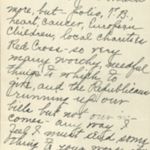 more but - polio, T.B.
heart, cancer, European
children, local charities
Red Cross - so very
many worthy, needful
things to which to
give, and the Republicans
running up our
bills but not
comes - and now I
feel I must send some
thing to your